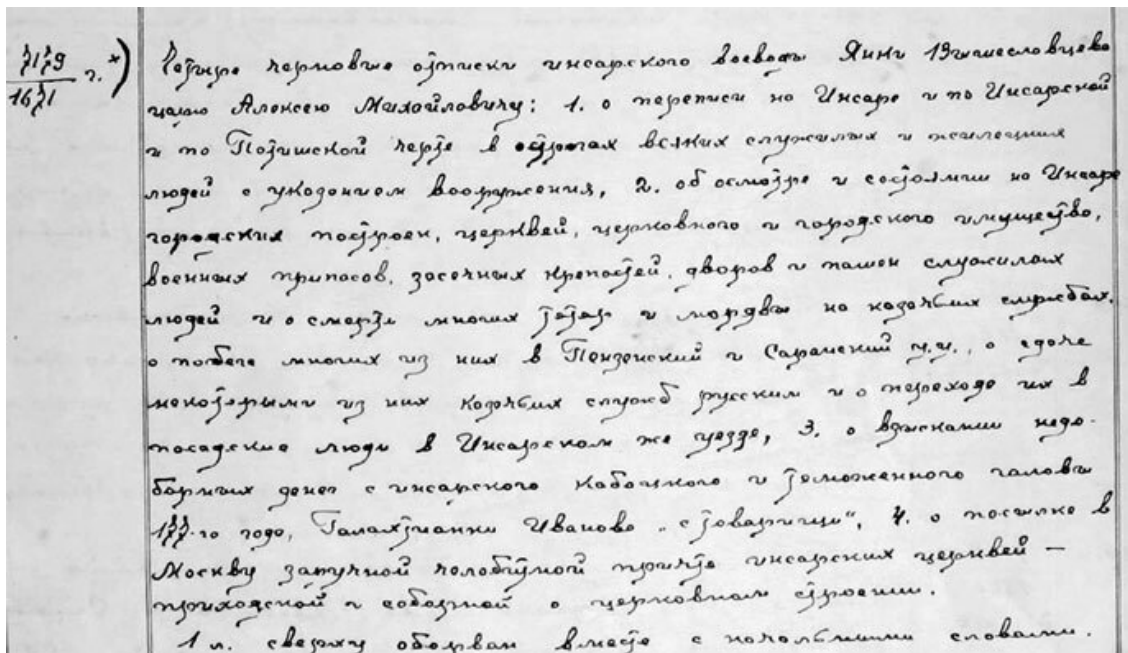 7179 г. *)
1671
Четыре черновые отписки инсарского воеводы Якик Вышеславцева
царю Алексею Михайловичу: 1. о переписи на Инсаре и по Инсарской
и по Потишской черте в острогах всяких служилых и жилецких
людей с указанием вооружения, 2. об осмотре и состоянии на Инсаре
городских построек, церквей, церковного и городского имущества,
военных припасов, засечных крепостей, дворов и пашен служилых
людей и о смерти многих татар и мордвы на казачьих службах,
о побеге многих из них в Пензенский и Саранский у.у., о сдаче
некоторыми из них казачьих служб русским и о переходе их в
посадские люди в Инсарском же уезде, 3. о взыскании недо-
борных денег с инсарского кабацкого и таможенного головы
177-го года, Галахтианки Иванова „с товарищи“, 4. о посылке в
Москву заручной челобитной причта инсарских церквей —
приходской и соборной о церковном строении.
1 л. сверху оборван вместе с начальными словами.